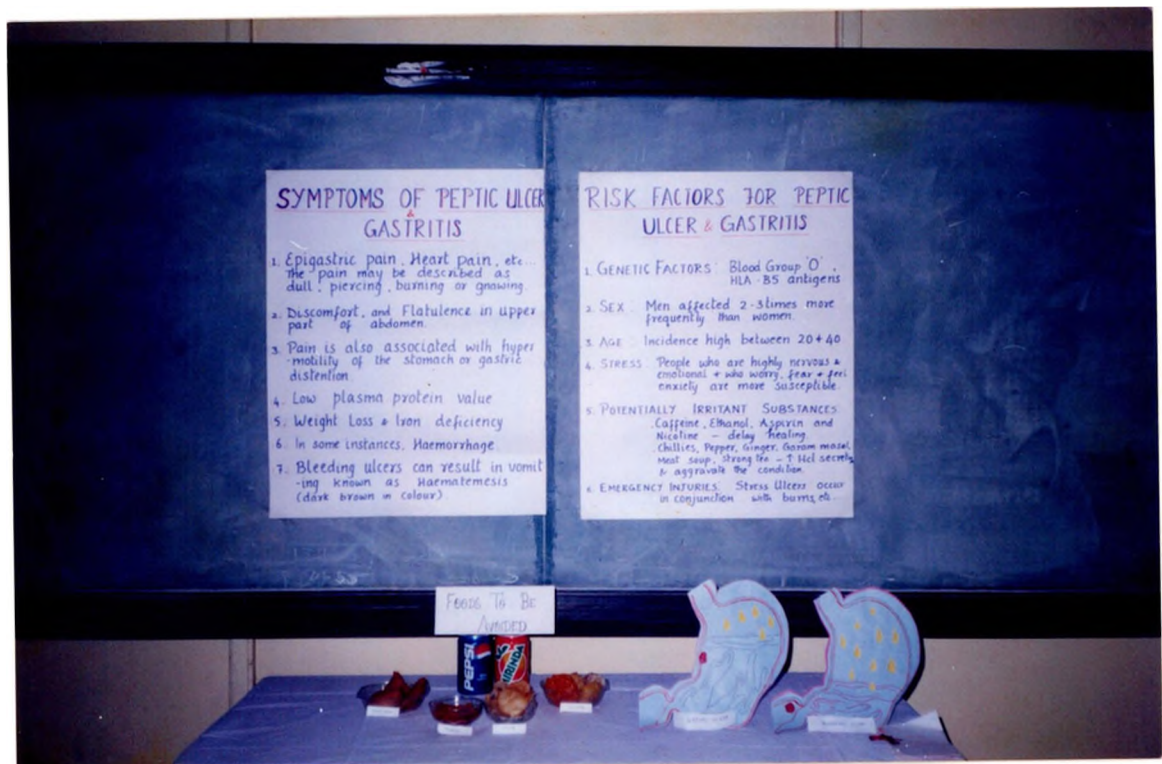 SYMPTOMS OF PEPTIC ULCER
&
GASTRITIS
1. Epigastric pain, Heart pain, etc...
The pain may be described as
dull, piercing, burning or gnawing.
2. Discomfort, and Flatulence in upper
part of abdomen.
3. Pain is also associated with hyper
-motility of the stomach or gastric
distention.
4. Low plasma protein value
5. Weight Loss & Iron deficiency
6. In some instances, Haemorrhage.
7. Bleeding ulcers can result in vomit
-ing known as Haematemesis
(dark brown in colour)
RISK FACTORS FOR PEPTIC
ULCER & GASTRITIS
1. GENETIC FACTORS: Blood Group 'O',
HLA-B5 antigens
2. SEX: Men affected 2-3 times more
frequently than women.
3. AGE: Incidence high between 20+40
4. STRESS: People who are highly nervous &
emotional + who worry, fear + feel
enxiety are more susceptible.
5. POTENTIALLY IRRITANT SUBSTANCES
Caffeine, Ethanol, Aspirin and
Nicotine – delay healing.
Chillies, Pepper, Ginger, Garam masal,
Meat soup, strong tea – ↑ Hcl secret
& aggravate the condition.
6. EMERGENCY INJURIES: Stress Ulcers occur
in conjunction with burns, etc...
FOODS TO BE
AVOIDED
PEPSI
MIRINDA